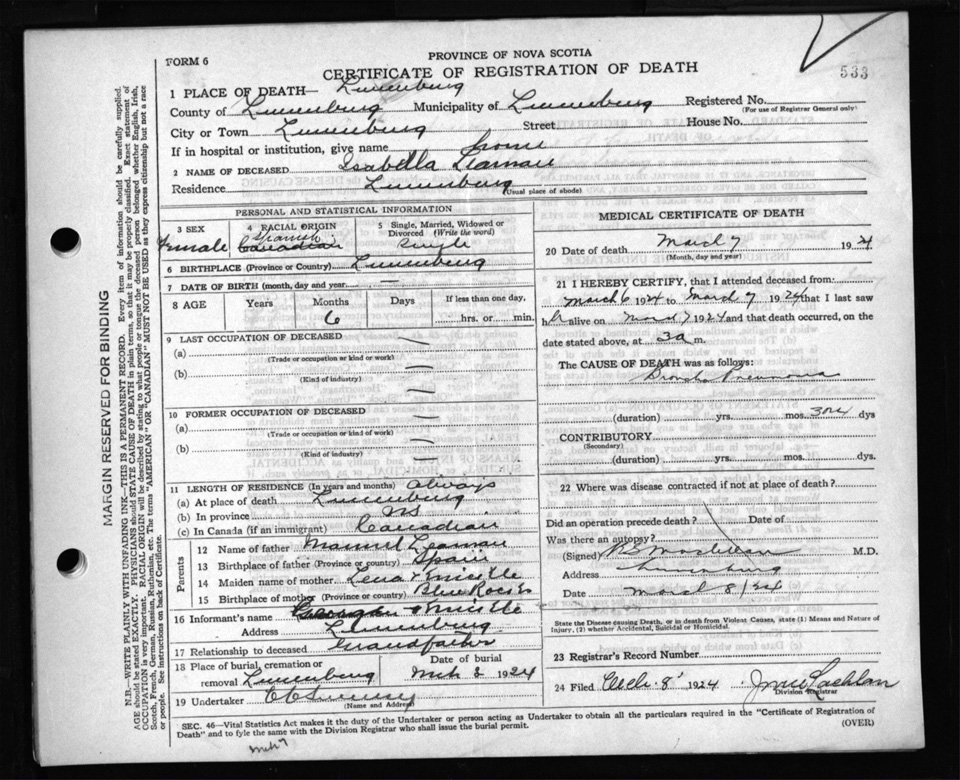 FORM 6
PROVINCE OF NOVA SCOTIA
CERTIFICATE OF REGISTRATION OF DEATH
533
1 PLACE OF DEATH— Lunenburg
County of Lunenburg Municipality of Lunenburg Registered No.
(For use of Registrar General only)
City or Town Lunenburg Street House No.
If in hospital or institution, give name home
2 NAME OF DECEASED Isabella Leaman
Residence Lunenburg (Usual place of abode)
PERSONAL AND STATISTICAL INFORMATION
3 SEX
Female
4 RACIAL ORIGIN
Spanish
Canadian
5 Single, Married, Widowed or Divorced (Write the word)
Single
6 BIRTHPLACE (Province or Country) Lunenburg
7 DATE OF BIRTH (month, day and year) —
8 AGE Years Months Days If less than one day,
6 hrs. or min.
9 LAST OCCUPATION OF DECEASED
(a)
(Trade or occupation or kind or work)
(b)
(Kind of industry)
10 FORMER OCCUPATION OF DECEASED
(a)
(Trade or occupation or kind of work)
(b)
(Kind of industry)
11 LENGTH OF RESIDENCE (In years and months) Always
(a) At place of death Lunenburg
(b) In province NS
(c) In Canada (if an immigrant) Canadian
Parents
12 Name of father Leaman
13 Birthplace of father (Province or Country) Spain
14 Maiden name of mother Lena
15 Birthplace of mother (Province or country) Blue Rocks
16 Informant's name
Address Lunenburg
17 Relationship to deceased Grandfather
18 Place of burial, cremation or removal Lunenburg
Date of burial
Mch 8 1924
19 Undertaker
(Name and Address)
MEDICAL CERTIFICATE OF DEATH
20 Date of death March 7 1924
(Month, day and year)
21 I HEREBY CERTIFY, that I attended deceased from:
March 6 1924 to March 7 1924 that I last saw
her alive on March 7 1924 and that death occurred, on the
date stated above, at 3 a m.
The CAUSE OF DEATH was as follows:
Broncho Pneumonia
(duration) yrs. mos. dys
CONTRIBUTORY
(Secondary)
(duration) yrs. mos. dys.
22 Where was disease contracted if not at place of death?
Did an operation precede death? Date of
Was there an autopsy?
(Signed) M.D.
Address Lunenburg
Date March 8/24
State the Disease causing Death, or in death from Violent Causes, state (1) Means and Nature of
Injury, (2) whether Accidental, Suicidal or Homicidal.
23 Registrar's Record Number
24 Filed 8 1924
Division Registrar
SEC. 46—Vital Statistics Act makes it the duty of the Undertaker or person acting as Undertaker to obtain all the particulars required in the "Certificate of Registration of
Death" and to fyle the same with the Division Registrar who shall issue the burial permit. (OVER)
MARGIN RESERVED FOR BINDING
N.B.—WRITE PLAINLY WITH UNFADING INK—THIS IS A PERMANENT RECORD. Every item of information should be carefully supplied.
AGE should be stated EXACTLY. PHYSICIANS should STATE CAUSE OF DEATH in plain terms, so that it may be properly classified. Exact statement of
OCCUPATION is very important. RACIAL ORIGIN will be described by stating to what people or tongue the deceased person belonged whether English, Irish,
Scotch, French, German, Russian, Ruthenian, etc. The terms "AMERICAN" OR "CANADIAN" MUST NOT BE USED as they express citizenship but not a race
or people. See instructions on back of Certificate.